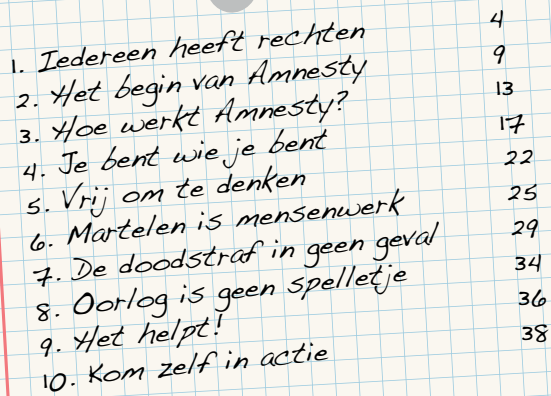 1. Iedereen heeft rechten 4
2. Het begin van Amnesty 9
3. Hoe werkt Amnesty? 13
4. Je bent wie je bent 17
5. Vrij om te denken 22
6. Martelen is mensenwerk 25
7. De doodstraf in geen geval 29
8. Oorlog is geen spelletje 34
9. Het helpt! 36
10. Kom zelf in actie 38